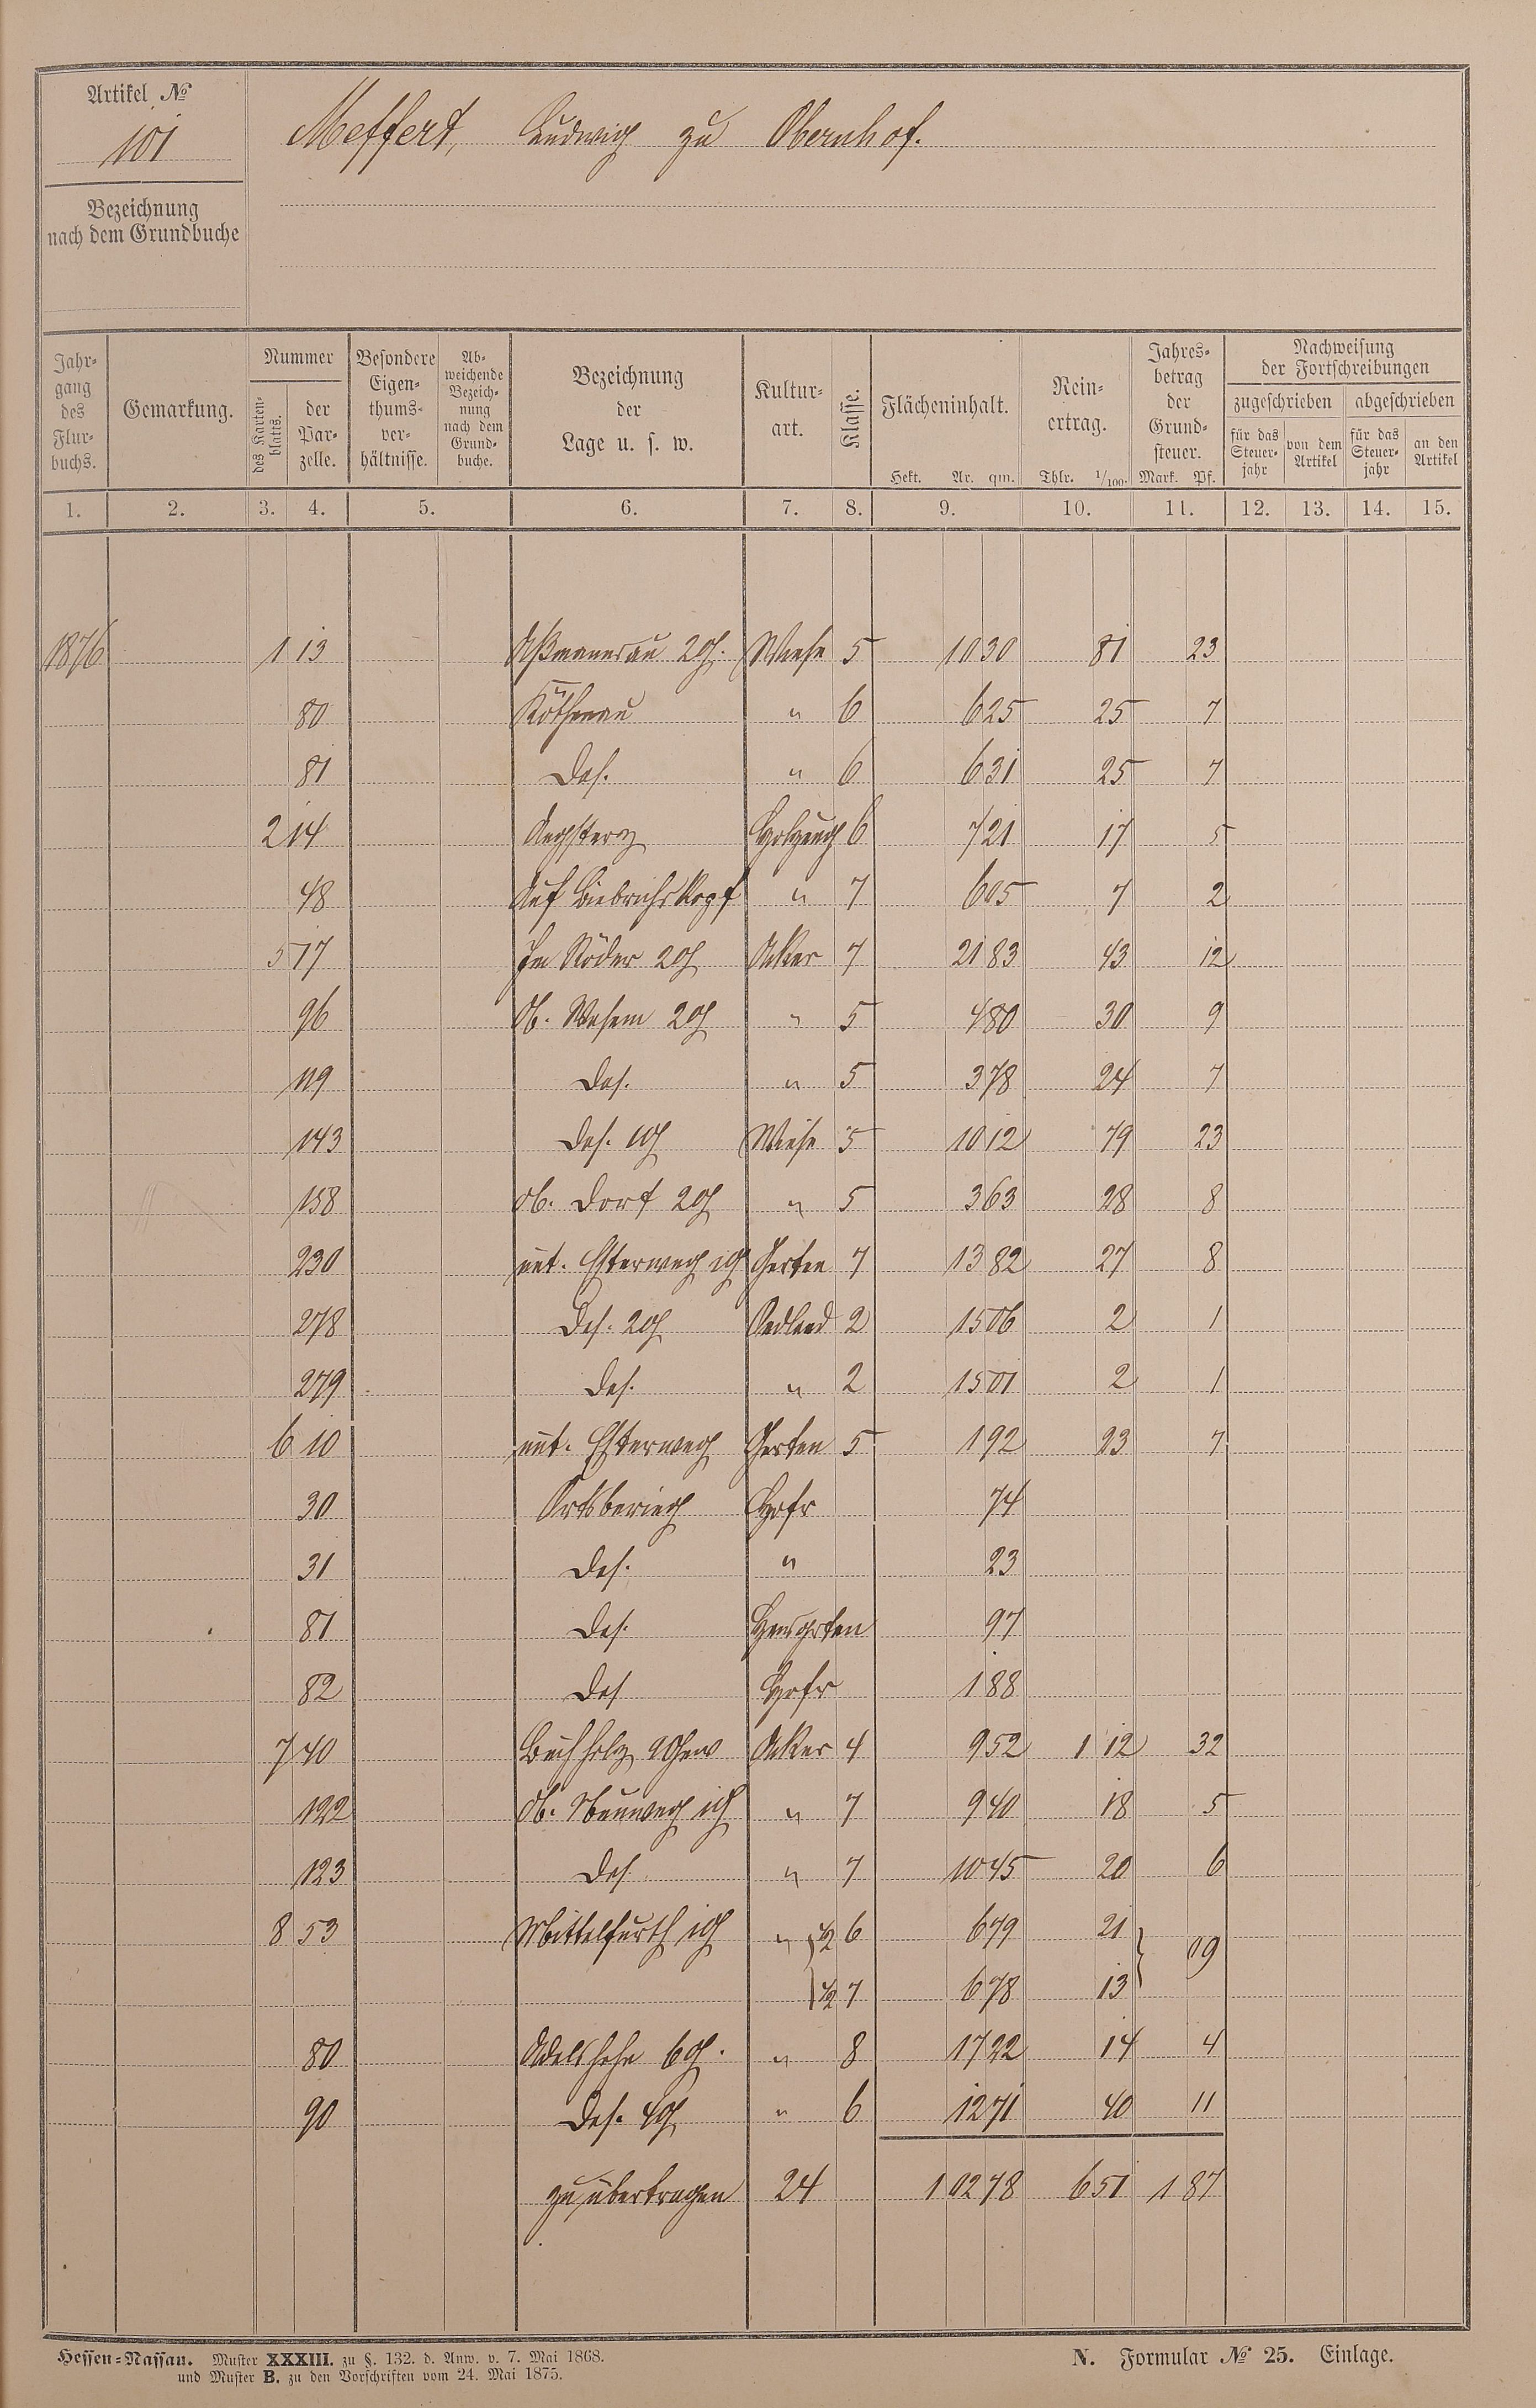 Artikel №
101
Meffert, Ludwig zu Obernhof.
Bezeichnung
nach dem Grundbuche
Jahr-
gang
des
Flur-
buchs.
Gemarkung.
Nummer
des Karten-
blatts.
der
Par-
zelle.
Besondere
Eigen-
thums-
ver-
hältnisse.
Ab-
weichende
Bezeich-
nung
nach dem
Grund-
buche.
Bezeichnung
der
Lage u. s. w.
Kultur-
art.
Klasse.
Flächeninhalt.
Hekt. Ar. qm.
Rein-
ertrag.
Thlr. 1/100.
Jahres-
betrag
der
Grund-
steuer.
Mark. Pf.
Nachweisung
der Fortschreibungen
zugeschrieben abgeschrieben
für das
Steuer-
jahr
von dem
Artikel
für das
Steuer-
jahr
an den
Artikel
1. 2. 3. 4. 5. 6. 7. 8. 9. 10. 11. 12. 13. 14. 15.
1876 1 13 2 Wiese 5 10 30 81 23
80 Röthenau " 6 6 25 25 7
81 Das. " 6 6 31 25 7
2 14 6 7 21 17 5
48 Auf Biebrichskopf " 7 6 05 7 2
5 17 Im Röder 2 Acker 7 21 83 43 12
96 Ob. 2 " 5 4 80 30 9
119 Das. " 5 3 78 24 7
143 Das. Wiese 5 10 12 79 23
158 Ob. Dorf 2 " 5 3 63 28 8
230 unt. Garten 7 13 82 27 8
278 Das. 2 Oedland 2 15 06 2 1
279 Das. " 2 15 01 2 1
6 10 unt. Garten 5 1 92 23 7
30 Ortsbering Hofr 74
31 Das. " 23
81 Das. Hausgarten 97
82 Das Hofr 1 88
7 40 Buchholz Acker 4 9 52 1 12 32
122 Ob. " 7 9 40 18 5
123 Das. " 7 10 45 20 6
8 53 Mittelfurth " 1/2 6 6 79 21 09
1/2 7 6 78 13
80 6 " 8 17 22 14 4
90 Das. 4 " 6 12 71 40 11
zu übertragen 24 1 92 78 6 51 1 87
Hessen-Nassau. Muster XXXIII. zu §. 132. d. Anw. v. 7. Mai 1868.
und Muster B. zu den Vorschriften vom 24. Mai 1875.
N. Formular № 25. Einlage.